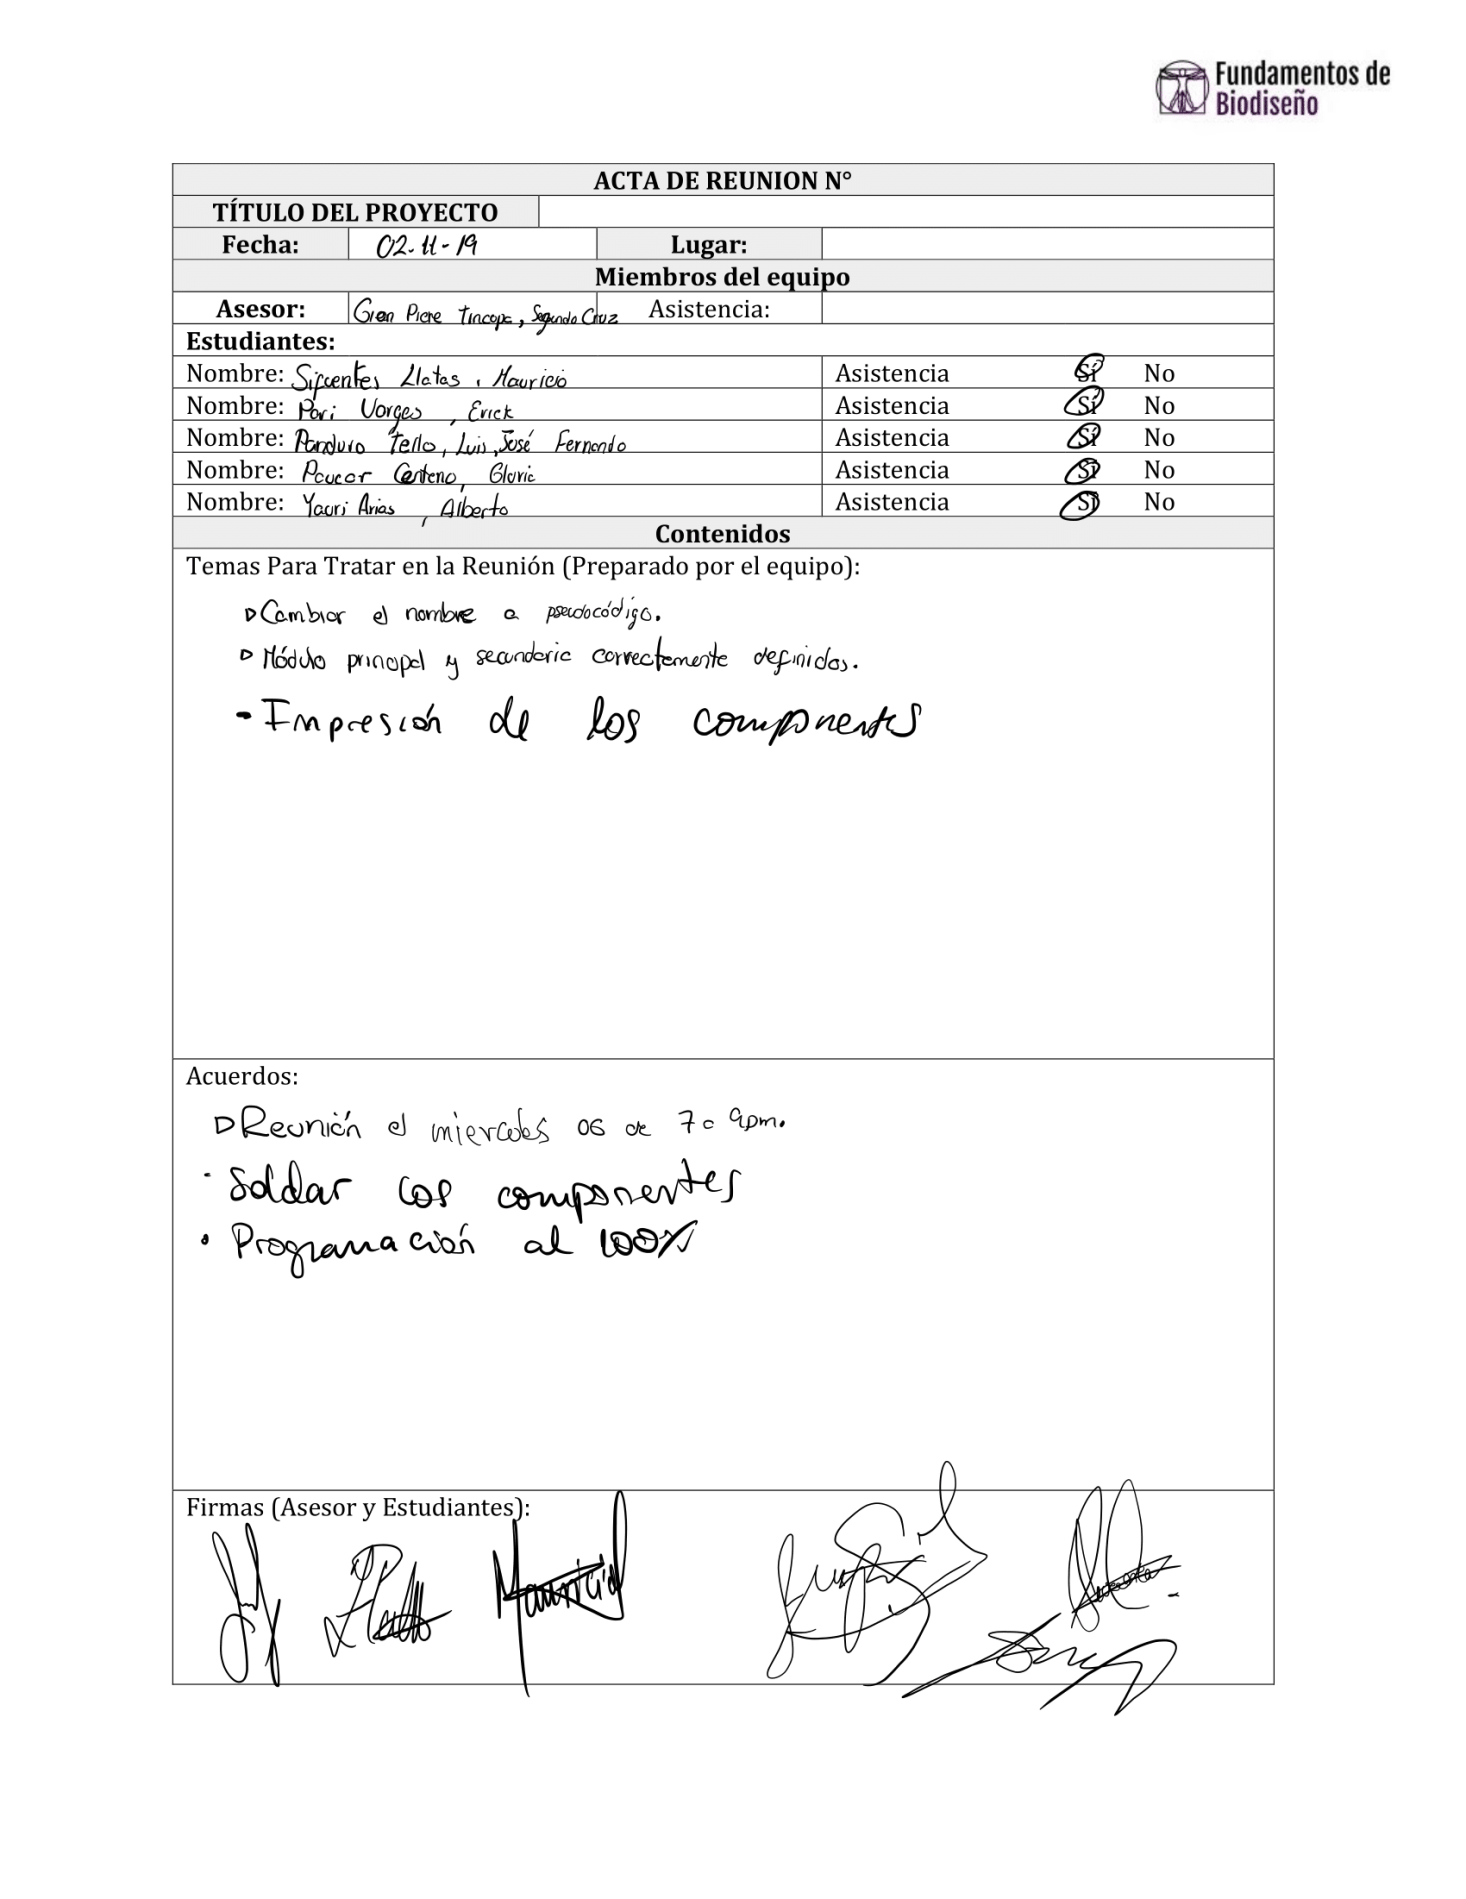 Fundamentos de
Biodiseño
ACTA DE REUNION N°
TÍTULO DEL PROYECTO
Fecha: 02-11-19 Lugar:
Miembros del equipo
Asesor: Gian Piere Tincopa, Segundo Cruz Asistencia:
Estudiantes:
Nombre: Sifuentes Llatas, Mauricio Asistencia Sí No
Nombre: Pari Vargas, Erick Asistencia Sí No
Nombre: Panduro Tello, Luis, José Fernando Asistencia Sí No
Nombre: Paucar Centeno, Gloria Asistencia Sí No
Nombre: Yauri Arias, Alberto Asistencia Sí No
Contenidos
Temas Para Tratar en la Reunión (Preparado por el equipo):
Cambiar el nombre a pseudocódigo.
Módulo principal y secundario correctamente definidos.
- Impresión de los componentes
Acuerdos:
Reunión el miercoles 06 de 7 a 9pm.
- Soldar los componentes
• Programación al 100%
Firmas (Asesor y Estudiantes):
Mauricio